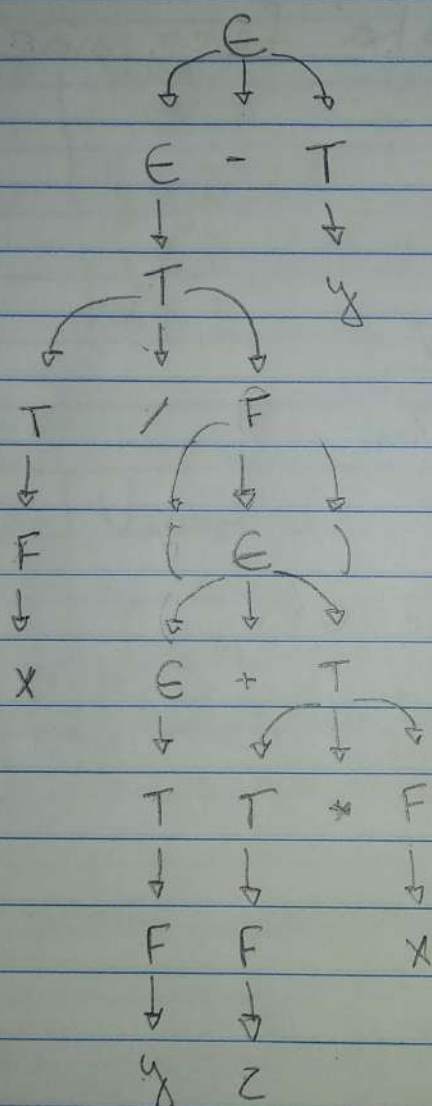 E
E - T
T y
T / F
F ( E )
x E + T
T T * F
F F x
y z